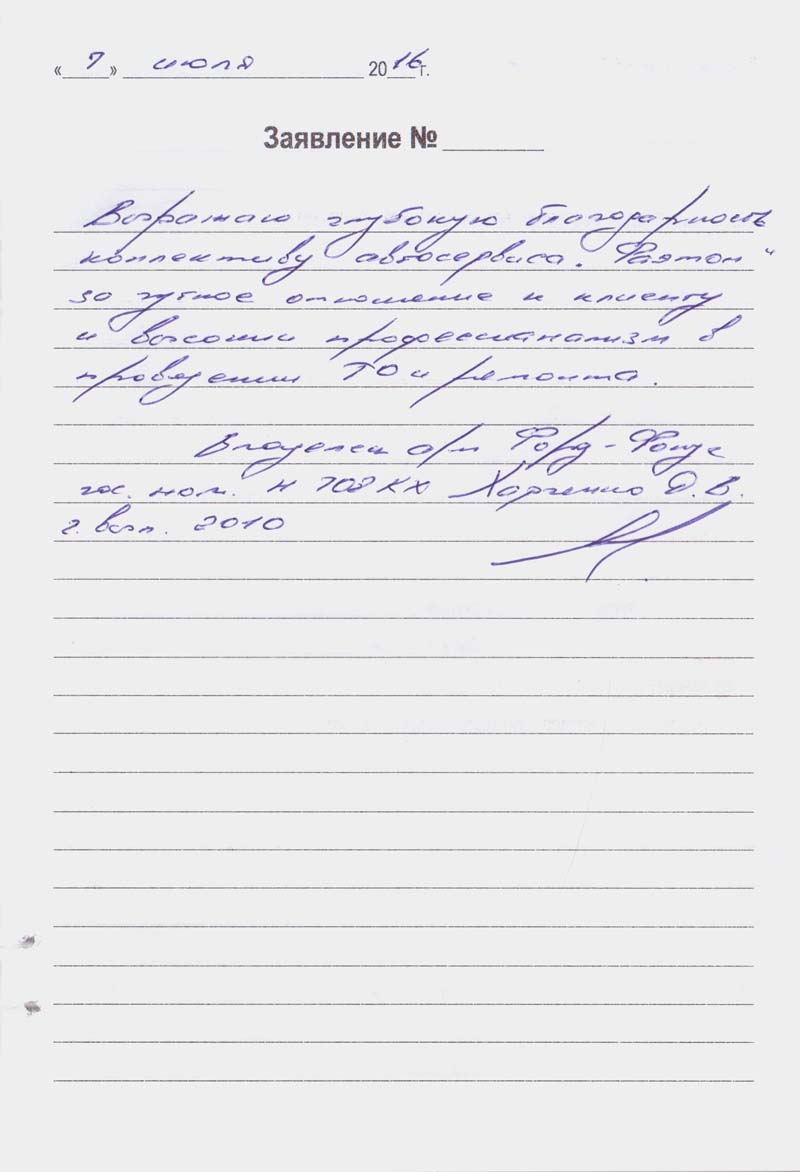 « 7 » июля 2016 г.
Заявление №
Выражаю глубокую благодарность
коллективу автосервиса „Фаэтон“
за чуткое отношение к клиенту
и высокий профессионализм в
проведении ТО и ремонта.
Владелец а/м Форд-Фокус
гос. ном. Н 708 КХ Харченко Д.В.
г. вып. 2010